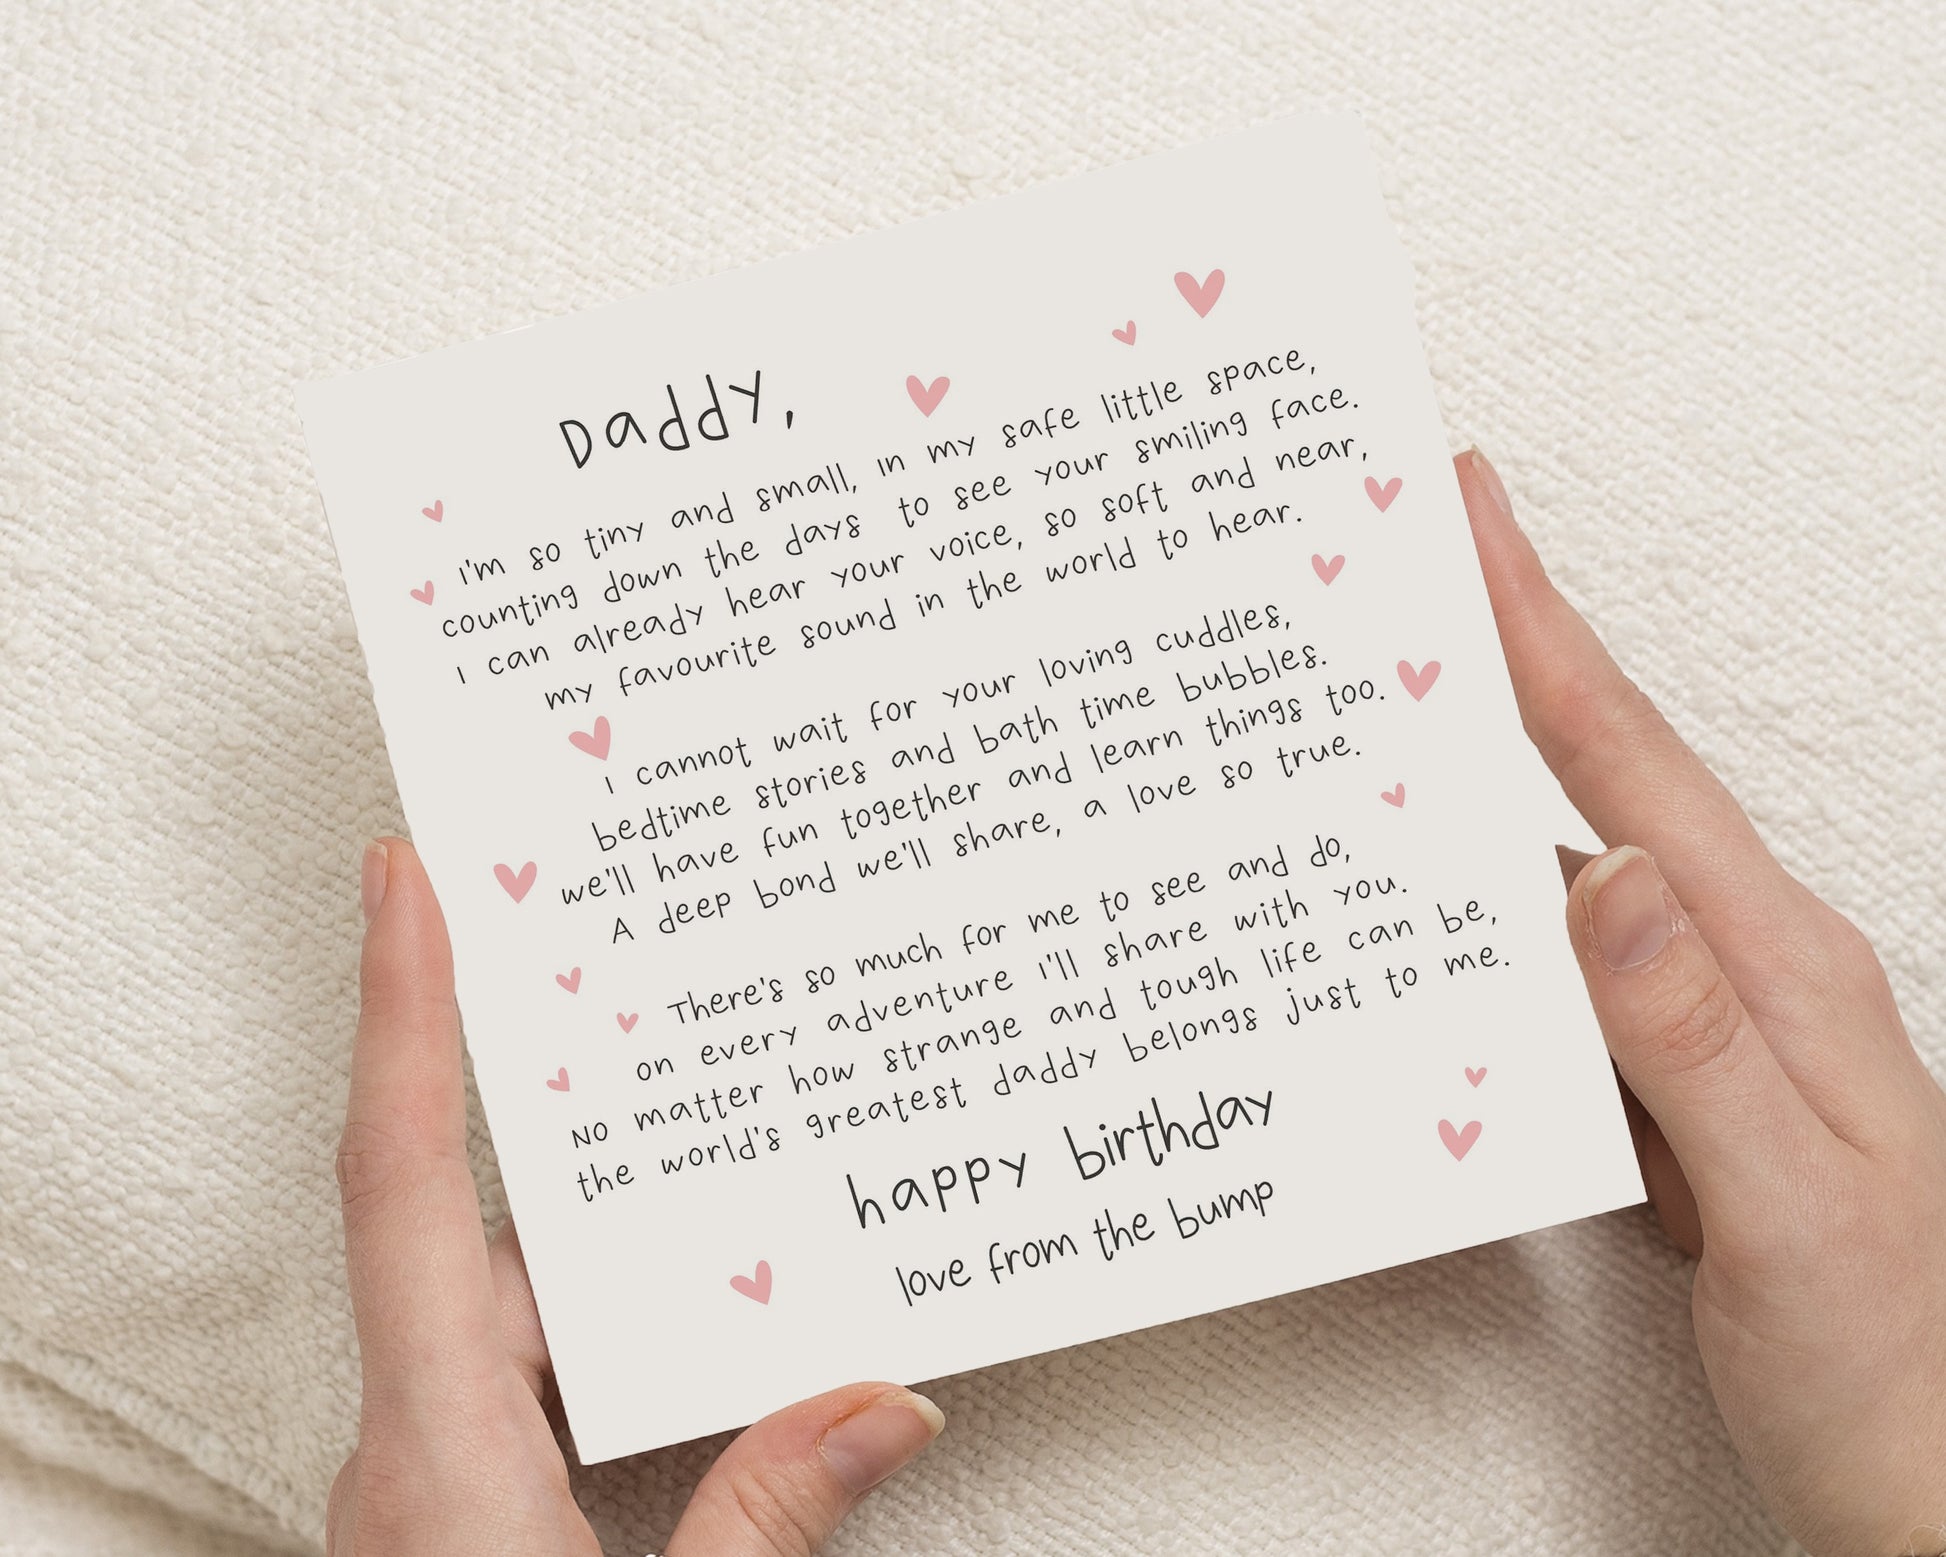 Daddy,
I'm so tiny and small, in my safe little space,
counting down the days to see your smiling face.
I can already hear your voice, so soft and near,
my favourite sound in the world to hear.
I cannot wait for your loving cuddles,
bedtime stories and bath time bubbles.
we'll have fun together and learn things too.
A deep bond we'll share, a love so true.
There's so much for me to see and do,
on every adventure I'll share with you.
No matter how strange and tough life can be,
the world's greatest daddy belongs just to me.
happy birthday
love from the bump